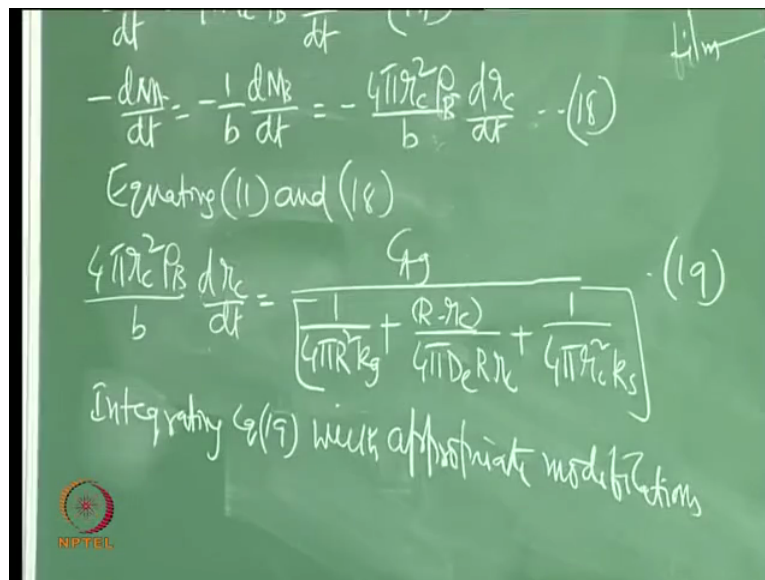 dt dt
film
-dNA/dt = -1/b dNB/dt = -4πrc²ρB/b drc/dt --(18)
Equating (11) and (18)
4πrc²ρB/b drc/dt = CAg/[1/4πR²kg + (R-rc)/4πDeRrc + 1/4πrc²ks] -(19)
Integrating Eq(19) with appropriate modifications
NPTEL